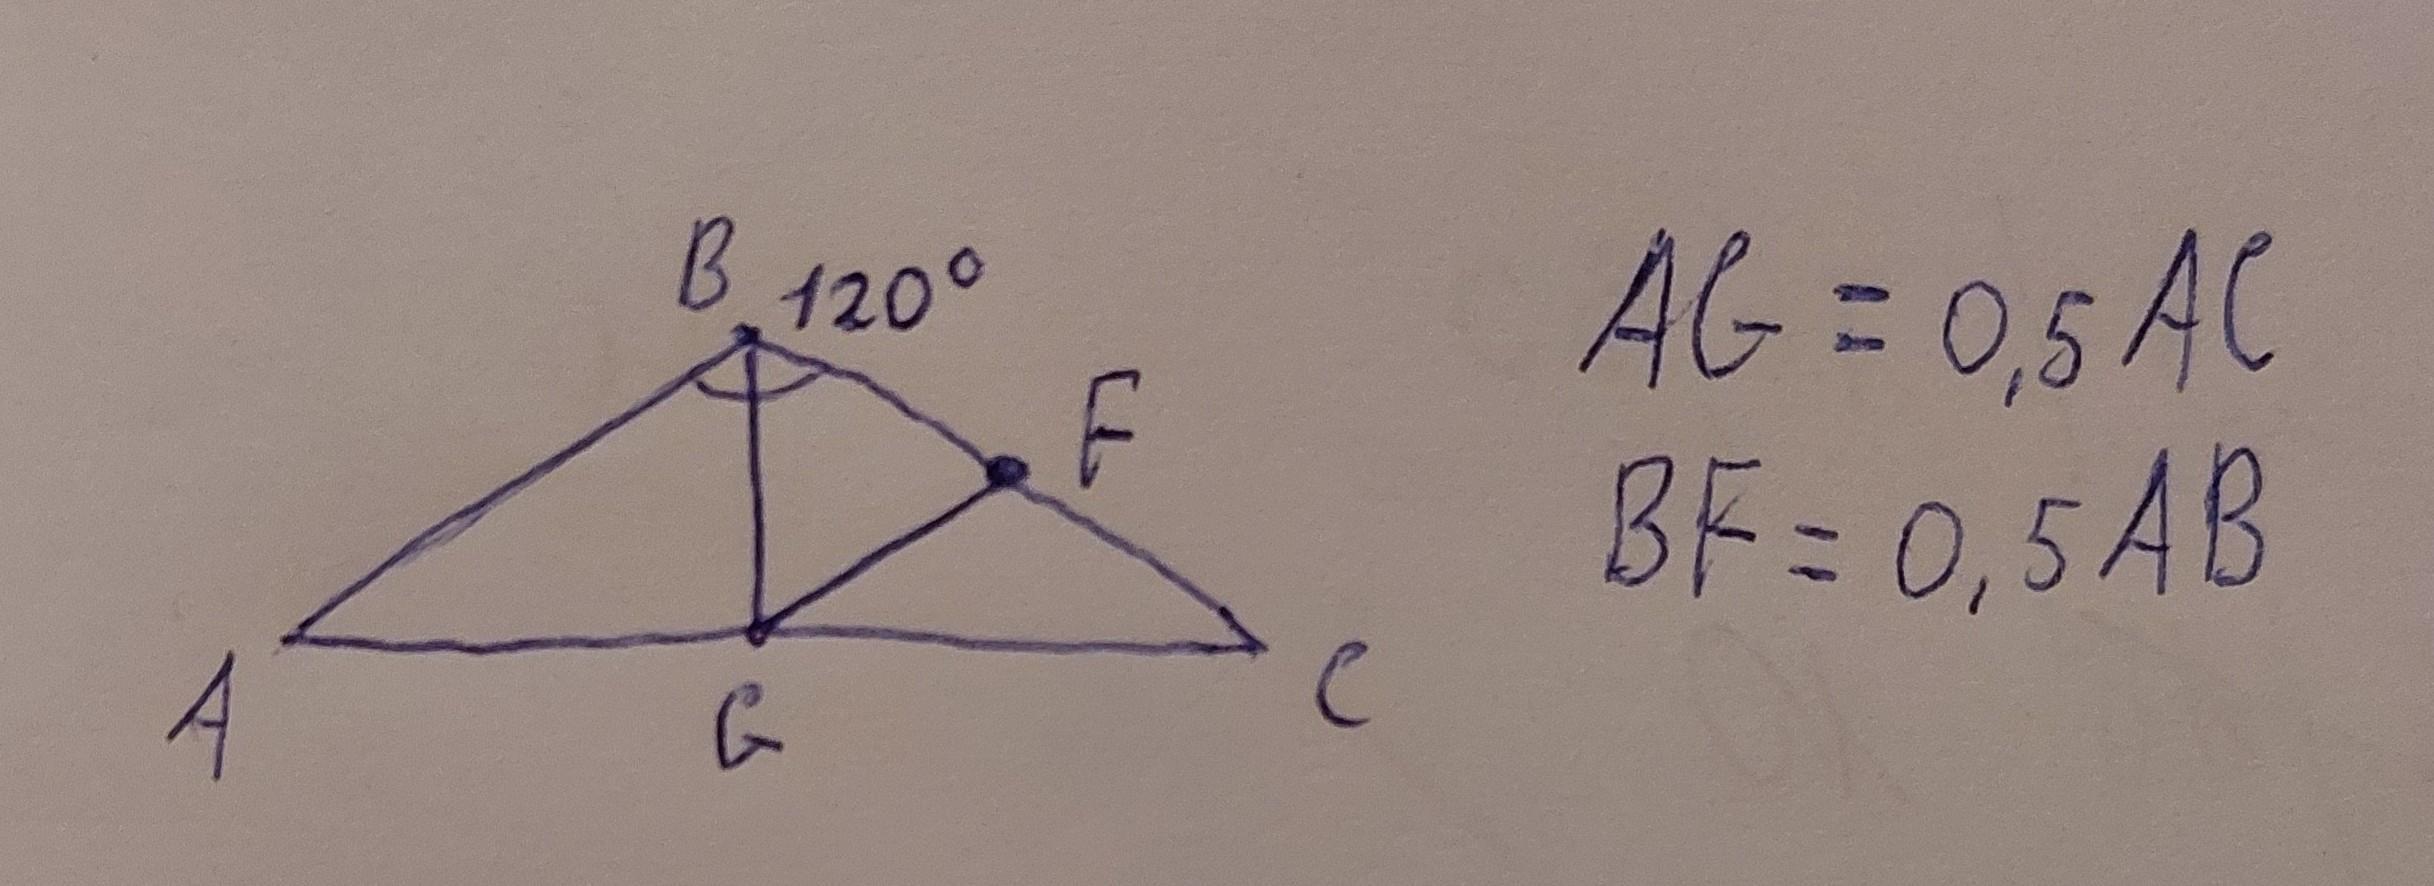 B 120°
F
A
G
C
AG = 0,5 AC
BF = 0,5 AB